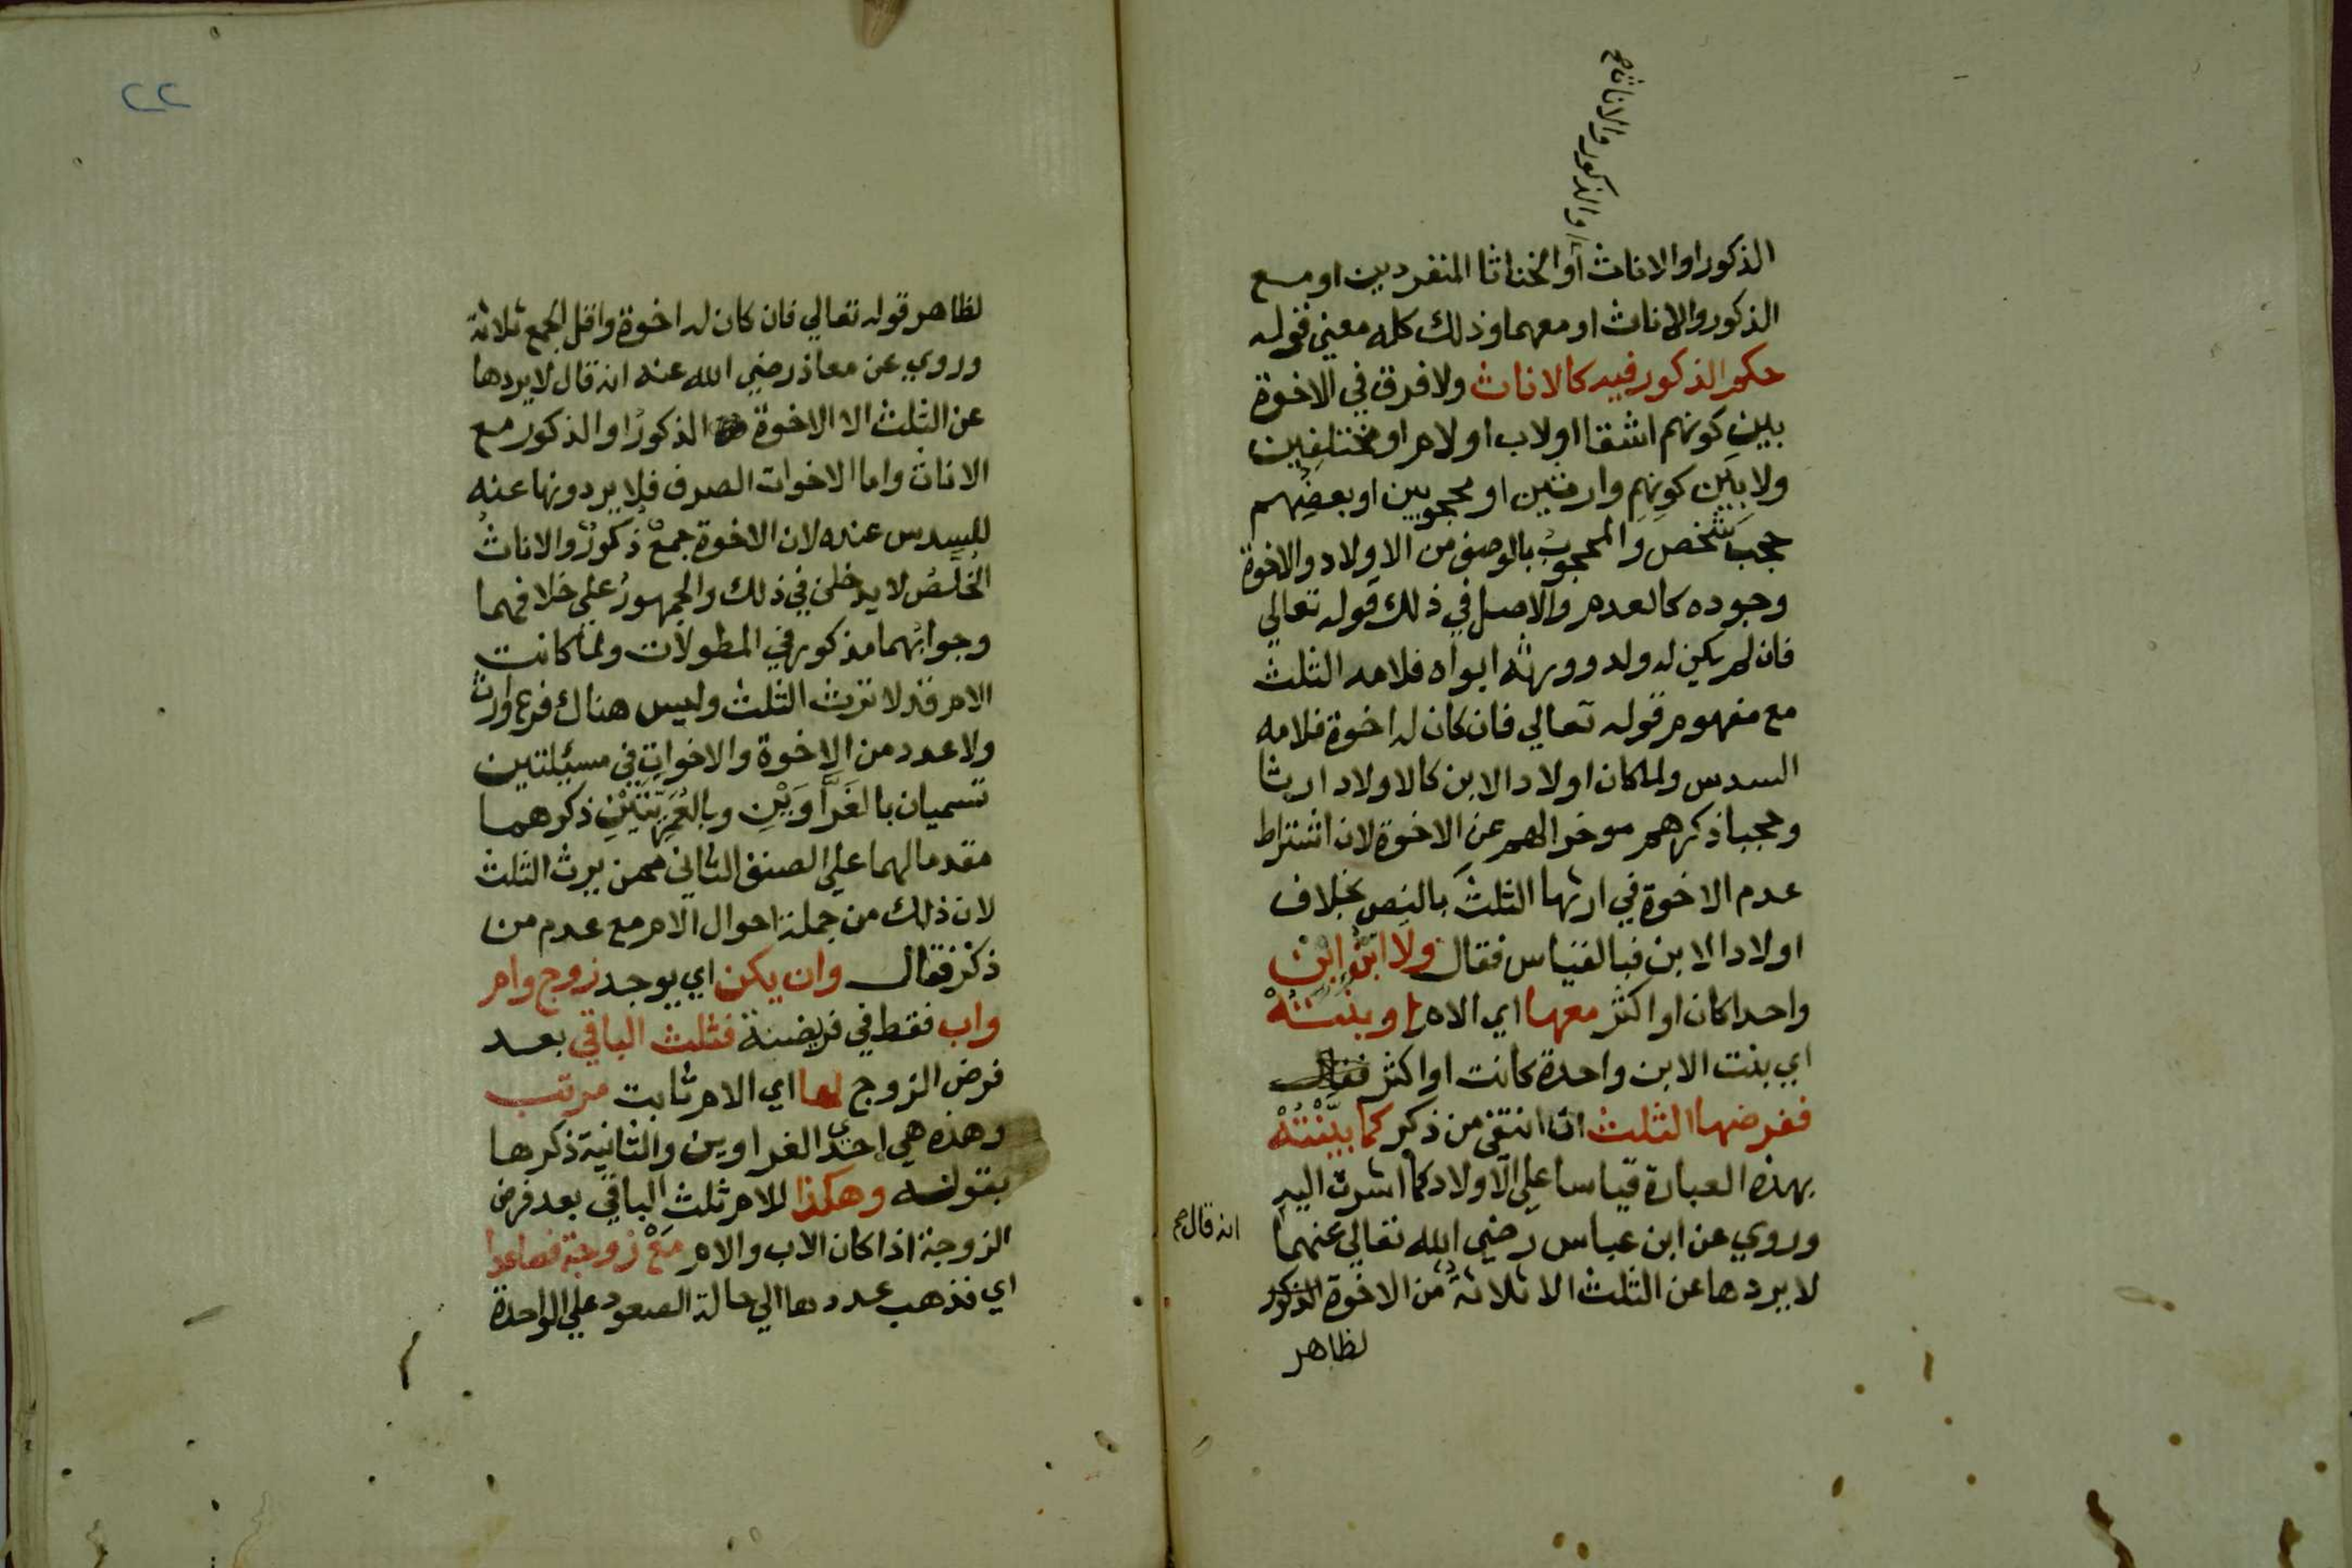 او الذكور والاناث صح
الذكور او الاناث أو الخناثا المنفردين او مع
الذكور والاناث او معهما وذلك كله معني قوله
حكم الذكور فيه كالاناث ولا فرق في الاخوة
بين كونهم اشقا اولاب اولام او مختلفين
ولا بين كونهم وارثين او محجوبين او بعضهم
حجب شخص والمحجوب بالوصف من الاولاد والاخوة
وجوده كالعدم والاصل في ذلك قوله تعالي
فان لم يكن له ولد وورثه ابواه فلامه الثلث
مع مفهوم قوله تعالي فان كان له اخوة فلامه
السدس ولما كان اولاد الابن كالاولاد ارثا
وحجبا ذكرهم موخرا لهم عن الاخوة لان اشتراط
عدم الاخوة في ارثها الثلث بالنص بخلاف
اولاد الابن فبالقياس فقال ولا ابْنُ ابْنٍ
واحدا كان او اكثر معها اي الام او بنْتُهْ
اي بنت الابن واحدة كانت او اكثر فقال
ففرضها الثلث ان انتفي من ذكر كما بيَّنْتُهْ
بهذه العبارة قياسا علي الاولاد كما اشرت اليه
وروي عن ابن عباس رضي الله تعالي عنهما
انه قال صح
لا يردها عن الثلث الا ثلاثة من الاخوة الذكور
لظاهر
٢٢
لظاهر قوله تعالي فان كان له اخوة واقل الجمع ثلاثة
وروي عن معاذ رضي الله عنه انه قال لا يردها
عن الثلث الا الاخوة الذكورُ او الذكور مع
الاناث واما الاخوات الصرف فلا يردونها عنه
للسدس عنده لان الاخوة جمعُ ذكورٌ والاناثُ
الخلّصُ لا يدخلن في ذلك والجمهورُ علي خلافهما
وجوابُهما مذكور في المطولات ولما كانت
الام قد لا ترث الثلث وليس هناك فرع وارث
ولا عدد من الاخوة والاخوات في مسئلتين
تسميان بالغَرَّاوَيْنِ وبالعُمَرِيَّتَيْنِ ذكرهما
مقدما لهما علي الصنف الثاني ممن يرث الثلث
لان ذلك من جملة احوال الام مع عدم من
ذكر فقال وان يكن اي يوجد زوج وام
واب فقط في فريضة فثلث الباقي بعد
فرض الزوج لها اي الام ثابت مرتب
وهذه هي احدي الغراوين والثانية ذكرها
بقوله وهكذا للام ثلث الباقي بعد فرض
الزوجة اذا كان الاب والام مَعْ زوجة فصاعدا
اي فذهب عددها الي حالة الصعود علي الواحدة